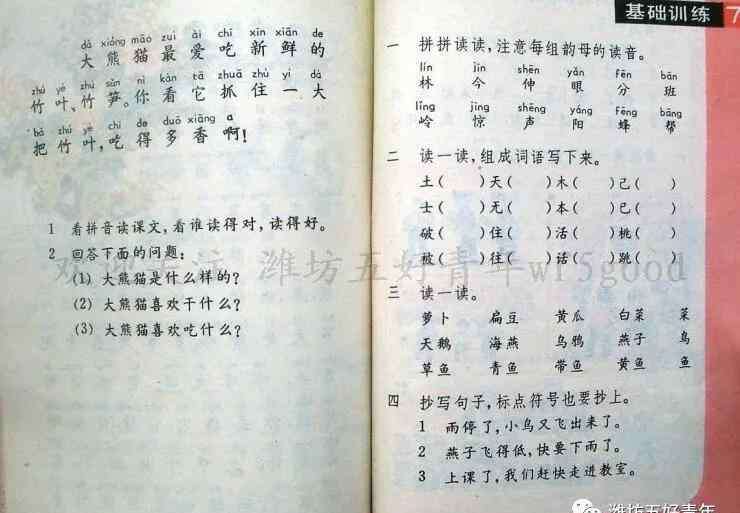 dà xióng māo zuì ài chī xīn xiān de
大熊猫最爱吃新鲜的
zhú yè zhú sǔn nǐ kàn tā zhuā zhù yí dà
竹叶、竹笋。你看它抓住一大
bǎ zhú yè chī de duō xiāng a
把竹叶,吃得多香啊!
1 看拼音读课文,看谁读得对,读得好。
2 回答下面的问题:
(1) 大熊猫是什么样的?
(2) 大熊猫喜欢干什么?
(3) 大熊猫喜欢吃什么?
基础训练 7
一 拼拼读读,注意每组韵母的读音。
lín jīn shēn yǎn fēn bān
林 今 伸 眼 分 班
lǐng jīng shēng yáng fēng bāng
岭 惊 声 阳 蜂 帮
二 读一读,组成词语写下来。
土( )天( )木( )己( )
士( )无( )本( )已( )
破( )住( )活( )桃( )
被( )往( )话( )跳( )
三 读一读。
萝卜 扁豆 黄瓜 白菜 菜
天鹅 海燕 乌鸦 燕子 鸟
草鱼 青鱼 带鱼 黄鱼 鱼
四 抄写句子,标点符号也要抄上。
1 雨停了,小鸟又飞出来了。
2 燕子飞得低,快要下雨了。
3 上课了,我们赶快走进教室。
欢迎关注 潍坊五好青年wf5good
潍坊五好青年